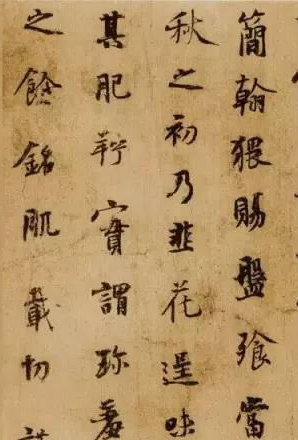 簡翰猥賜盤飧當
秋之初乃韭花逞味
其肥羜實謂珍羞
之餘銘肌載切